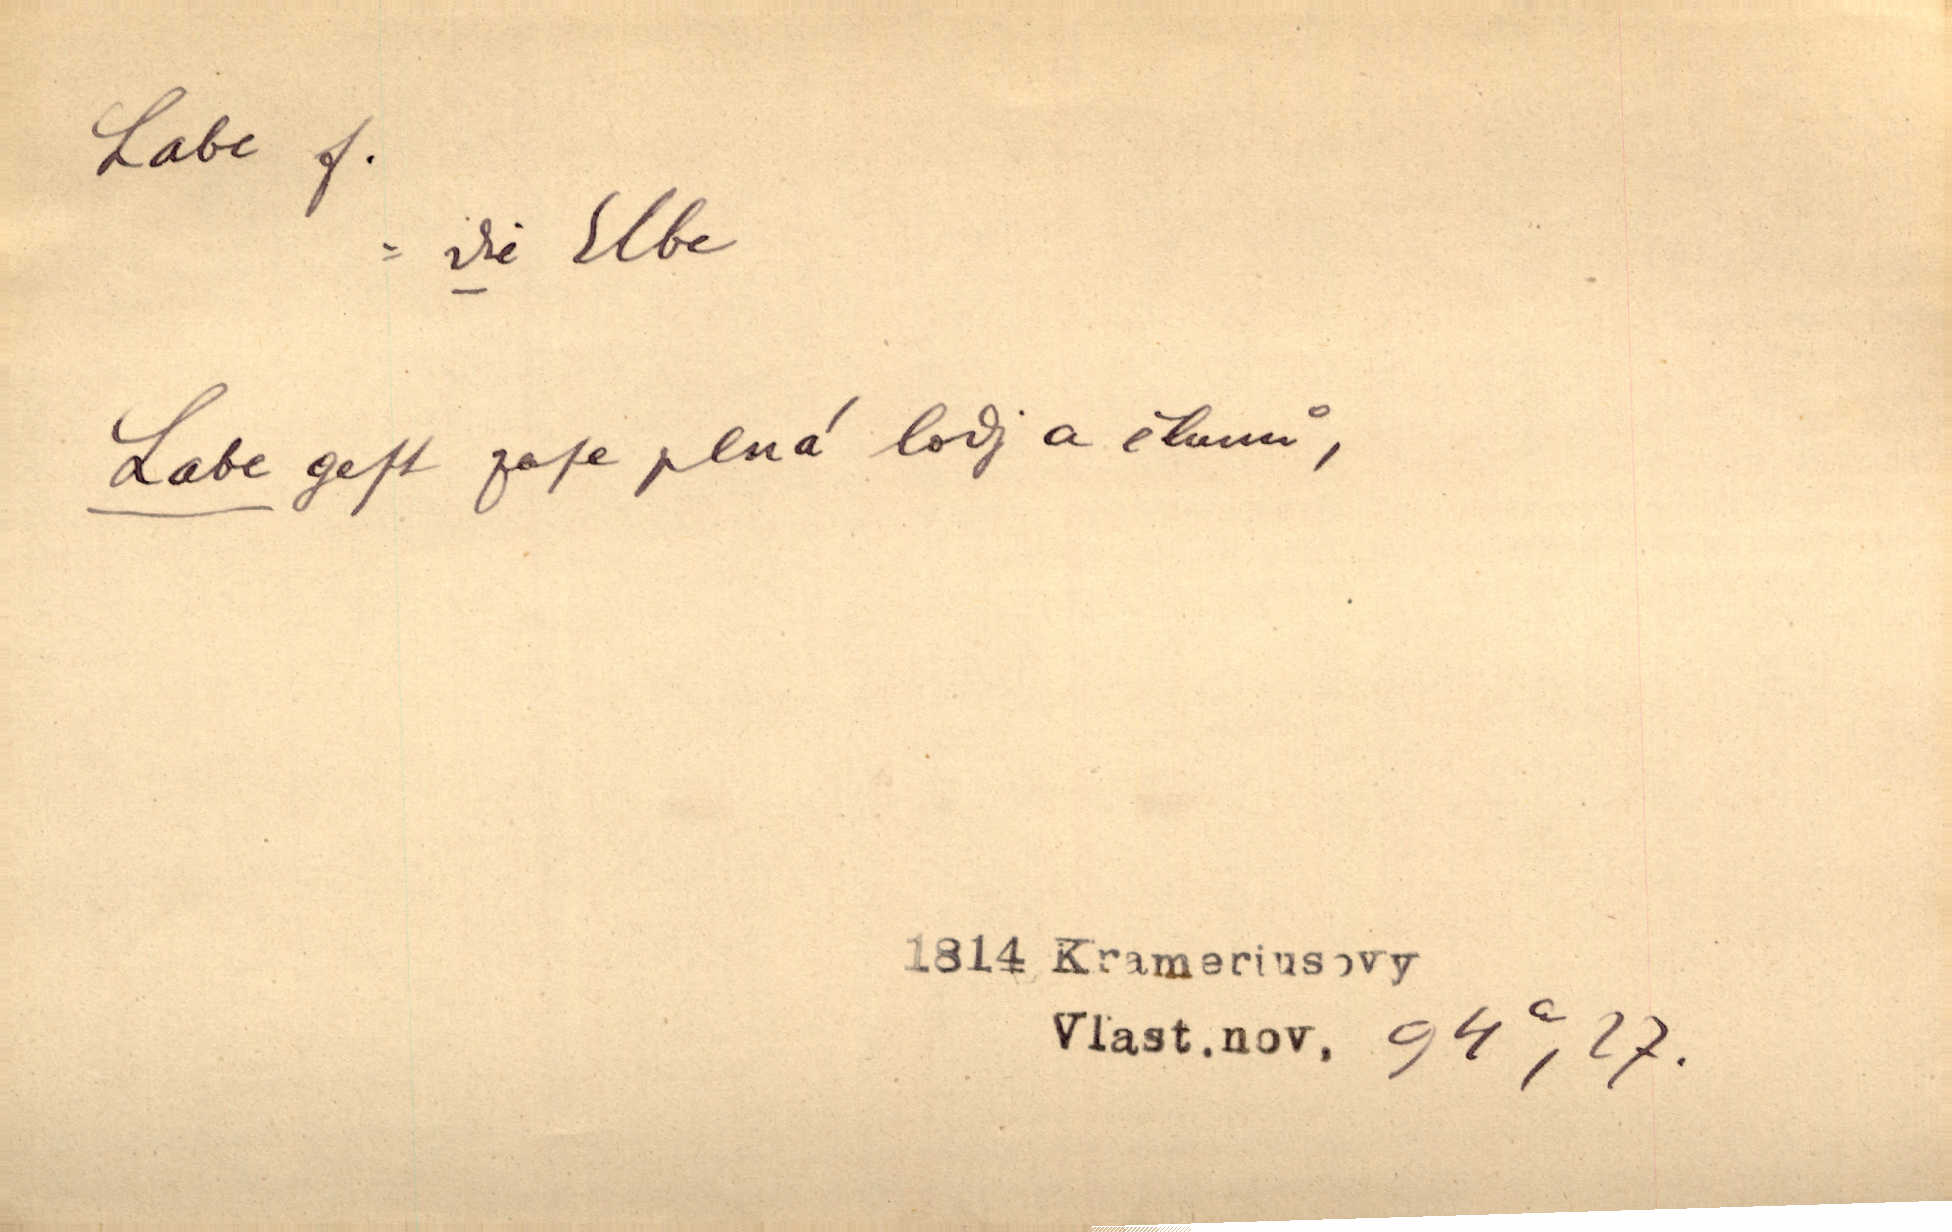 Labe f.
= die Elbe
Labe geſt zaſe plná lodj a člunů,
1814 Krameriusovy
Vlast.nov. 94ᵃ, 27.